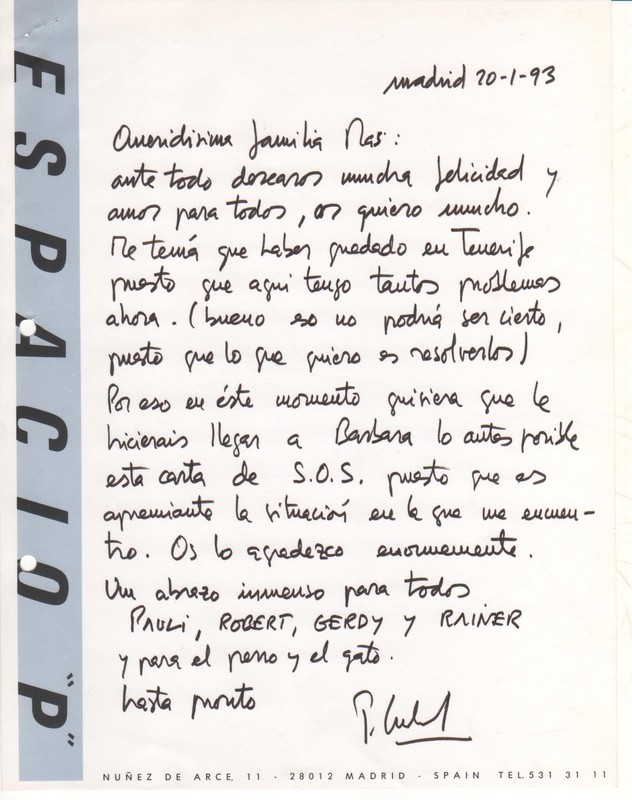 ESPACIO "P"
madrid 20-1-93
Queridisima familia Mas:
ante todo desearos mucha felicidad y
amor para todos, os quiero mucho.
Me tenía que haber quedado en Tenerife
puesto que aqui tengo tantos problemas
ahora. (bueno eso no podría ser cierto,
puesto que lo que quiero es resolverlos)
Por eso en éste momento quisiera que le
hicierais llegar a Barbara lo antes posible
esta carta de S.O.S. puesto que es
apremiante la situación en la que me encuen-
tro. Os lo agradezco enormemente.
Um abrazo inmenso para todos
PAULI, ROBERT, GERDY Y RAINER
y para el perro y el gato.
hasta pronto
NUÑEZ DE ARCE, 11 - 28012 MADRID - SPAIN TEL. 531 31 11